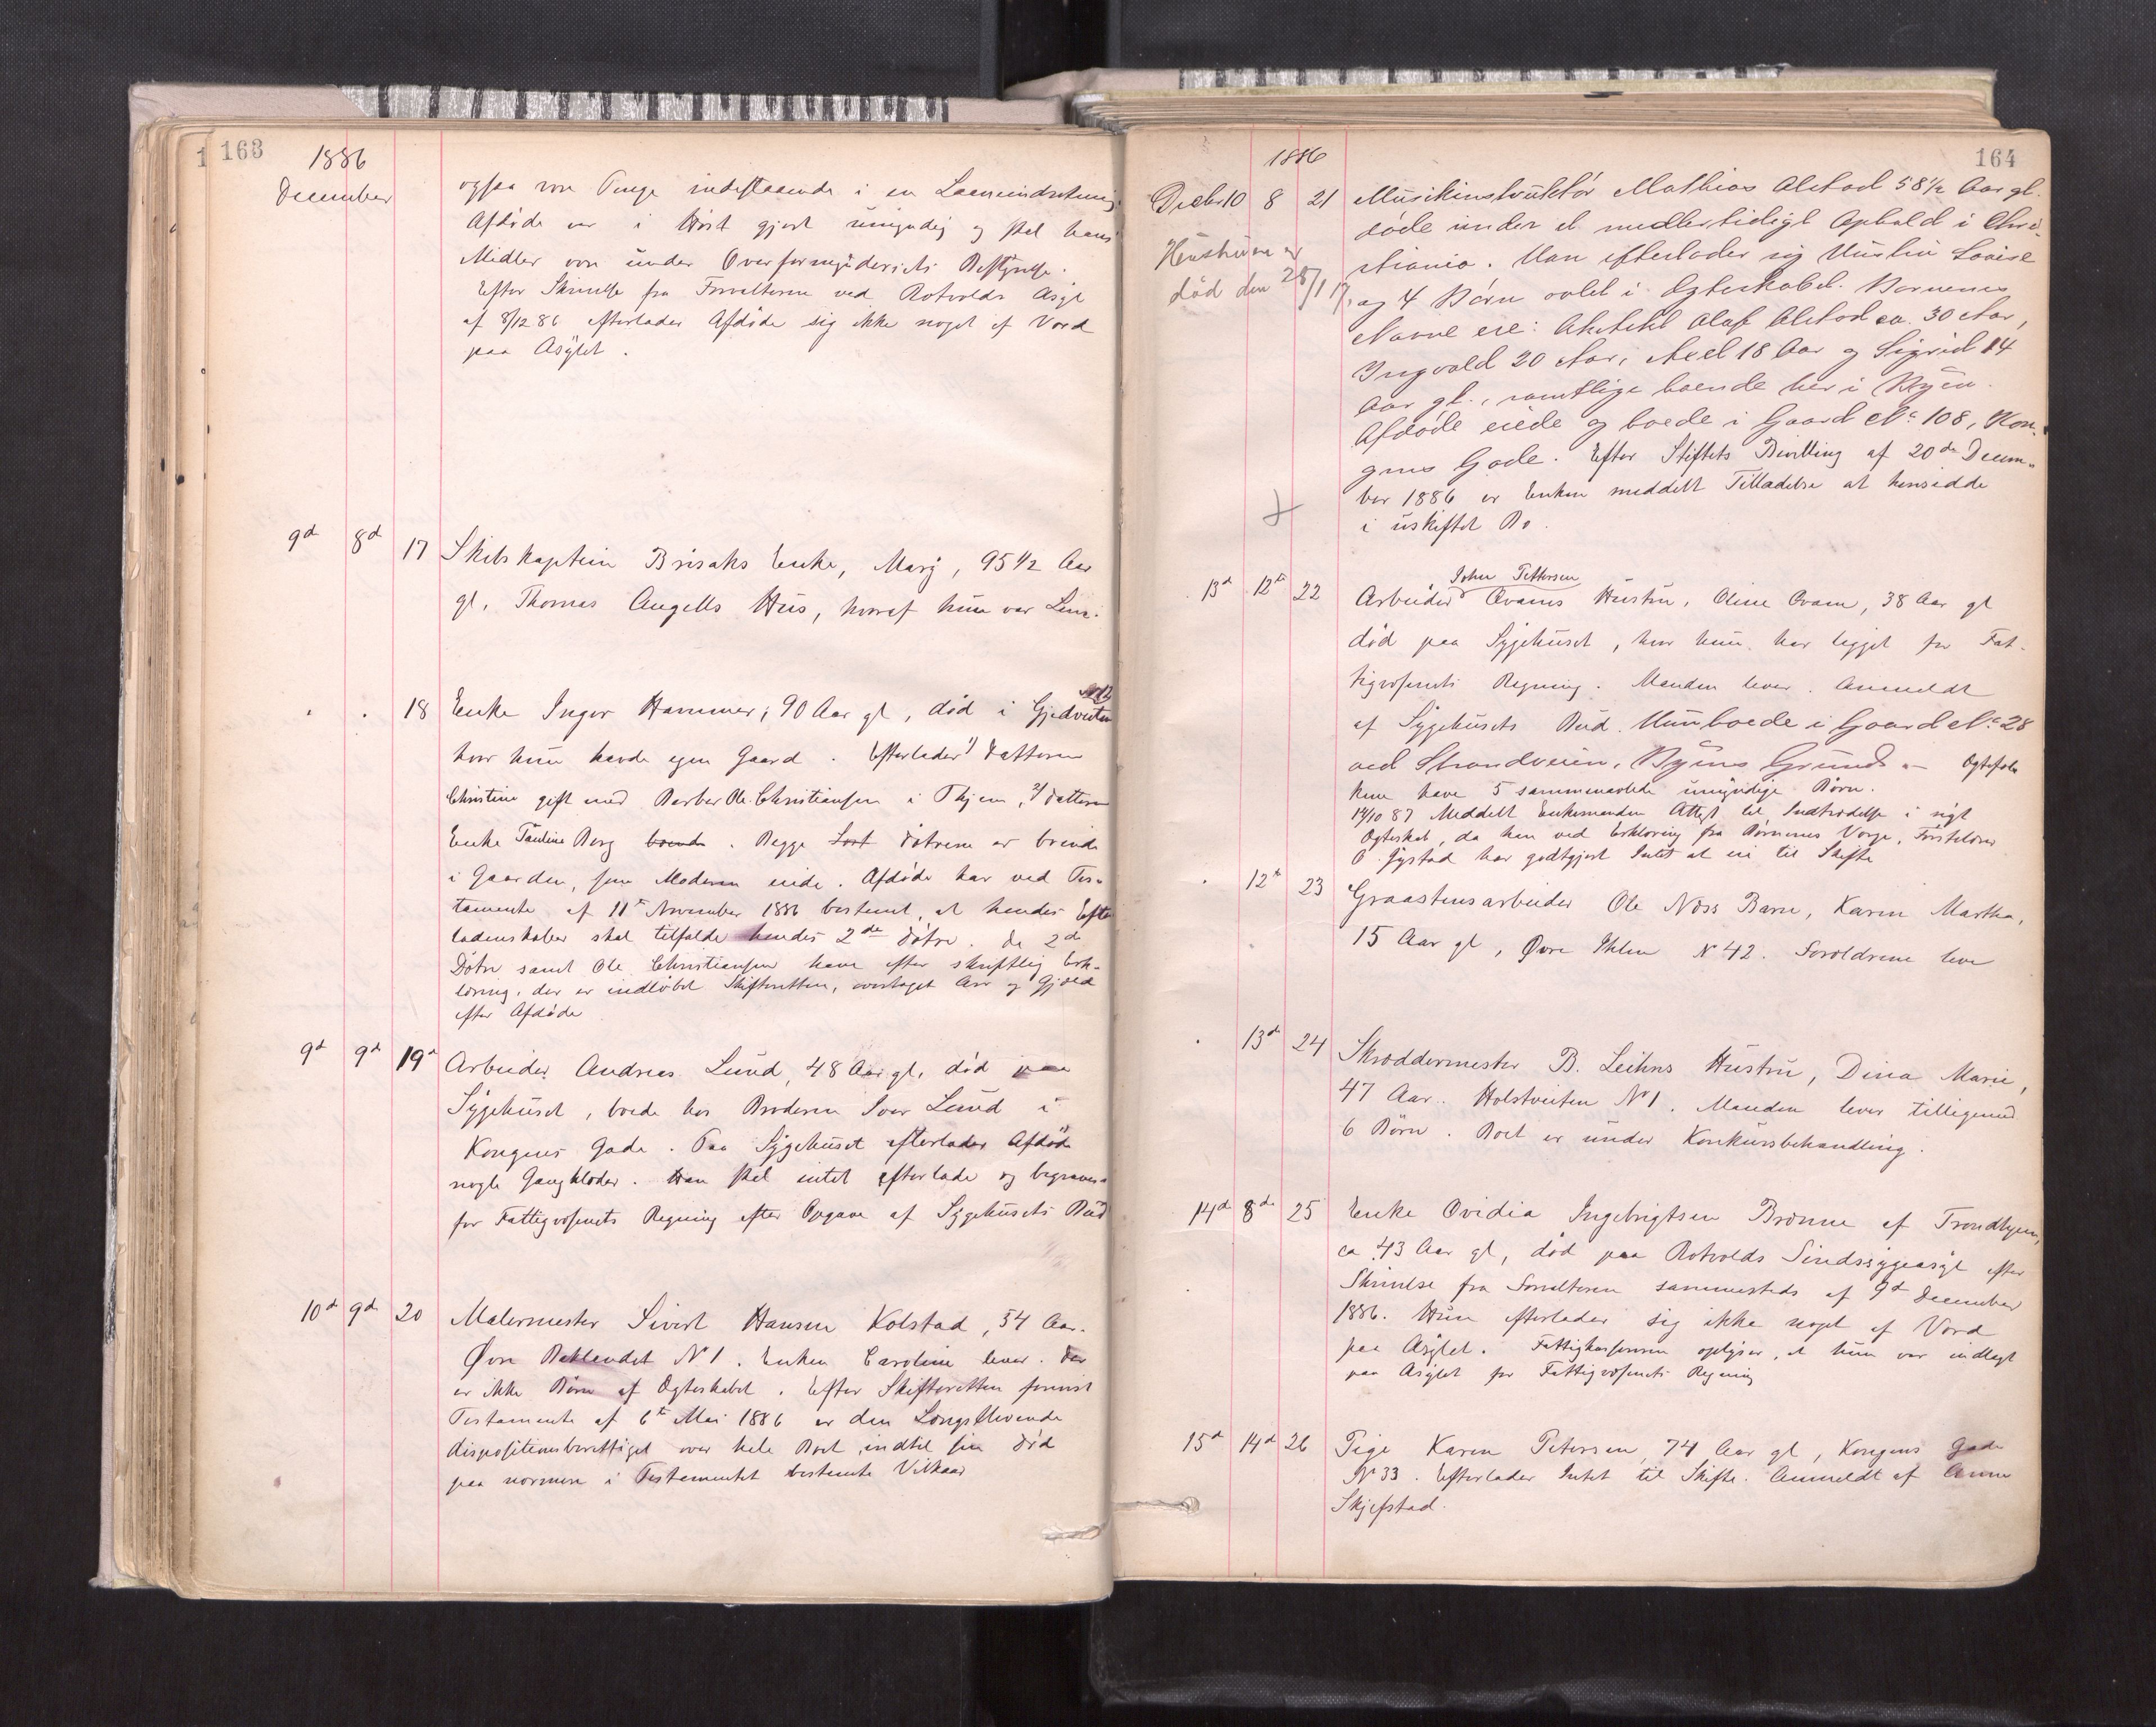 163
1886
December
ogsaa være Penge indestaaende i en Laaneindretning.
Afdøde var i Høst gjort umyndig og skal hans
Midler være under Overformynderiets Bestyrelse.
Efter Skrivelse fra Forvalteren ved Rotvolds Asyl
af 8/12 86 efterlader Afdøde sig ikke noget af Værd
paa Asylet.
9d 8d 17 Skibskaptein Brisaks Enke, Marj, 95 1/2 Aar
gl. Thomas Angells Hus, hvoraf hun var Lem.
18 Enke Inger Hammer, 90 Aar gl, død i Gjedveiten
hvor hun havde egen Gaard. Efterlader 1) Datteren
Christine gift med Barber Ole Christiansen i Thjem, 2) Datteren
Enke Pauline Berg boende. Begge Lart Døtrene er boende
i Gaarden, som Moderen eiede. Afdøde har ved Tes-
tamente af 11te November 1886 bestemt, at hendes Efter
ladenskaber skal tilfalde hendes 2de Døtre. De 2de
Døtre samt Ole Christiansen have efter skriftlig Erk-
læring, der er indløbet Skifteretten, overtaget Arv og Gjæld
efter Afdøde
9d 9d 19d Arbeider Andreas Lund, 48 Aar gl. død paa
Sygehuset, boede hos Broderen Iver Lund i
Kongens Gade. Paa Sygehuset efterlader Afdøde
nogle Gangklæder. Han skal intet efterlade og begraves
for Fattigvæsenets Regning efter Opgave af Sygehusets Bud
10d 9d 20 Malermester Sivert Hansen Kolstad, 54 Aar.
Øvre Baklandet No 1. Enken Caroline lever. Der
er ikke Børn af Ægteskabet. Efter Skifteretten forevist
Testamente af 6te Mai 1886 er den Længstlevende
dispositionsberettiget over hele Boet indtil sin Død
paa nærmere i Testamentet bestemte Vilkaar
164
1886
Decbr 10 8 21 Musikinstruktør Mathias Alstad 58 1/2 Aar gl.
døde under et midlertidigt Ophold i Chri-
Hustruen er
død den 28/1 17.
stiania. Han efterlader sig Hustru Louise
og 4 Børn avlet i Ægteskabet. Børnenes
Navne ere: Arkitekt Olaf Alstad ca. 30 Aar,
Ingvald 20 Aar, Axel 18 Aar og Sigrid 14
Aar gl., samtlige boende her i Byen.
Afdøde eiede og boede i Gaard No 108, Kon-
gens Gade. Efter Stiftets Bevilling af 20de Decem-
ber 1886 er Enken meddelt Tilladelse at hensidde
i uskiftet Bo.
John Pettersen
13d 12te 22 Arbeider Qvams Hustru, Oline Qvam, 38 Aar gl
død paa Sygehuset, hvor hun har ligget for Fat-
tigvæsenets Regning. Manden lever. Anmeldt
af Sygehusets Bud. Hun boede i Gaard No 28
ved Strandveien, Byens Grund. – Ægtefol-
kene have 5 sammenavlede umyndige Børn.
14/10 87 Meddelt Enkemanden Attest til Indtrædelse i nyt
Ægteskab, da han ved Erklæring fra Børnenes Værge,
O. Gystad har godtgjort Intet at eie til Skifte
12te 23 Graastensarbeider Ole Næss Barn, Karen Martha,
15 Aar gl, Øvre Ihlen No 42. Forældrene leve
13de 24 Skræddermester B. Leihns Hustru, Dina Marie,
47 Aar. Holstveiten No 1. Manden lever tilligemed
6 Børn. Boet er under Konkursbehandling.
14d 8de 25 Enke Ovidia Ingebrigtsen Brønne af Trondhjem,
ca 43 Aar gl, død paa Rotvolds Sindssygeasyl efter
Skrivelse fra Forvalteren sammesteds af 9de December
1886. Hun efterlader sig ikke noget af Værd
paa Asylet. Fattigkassereren oplyser, at hun var indlagt
paa Asylet for Fattigvæsenets Regning
15d 14d 26 Pige Karen Petersen, 74 Aar gl, Kongens Gade
No 33. Efterlader Intet til Skifte. Anmeldt af Anne
Skjefstad.